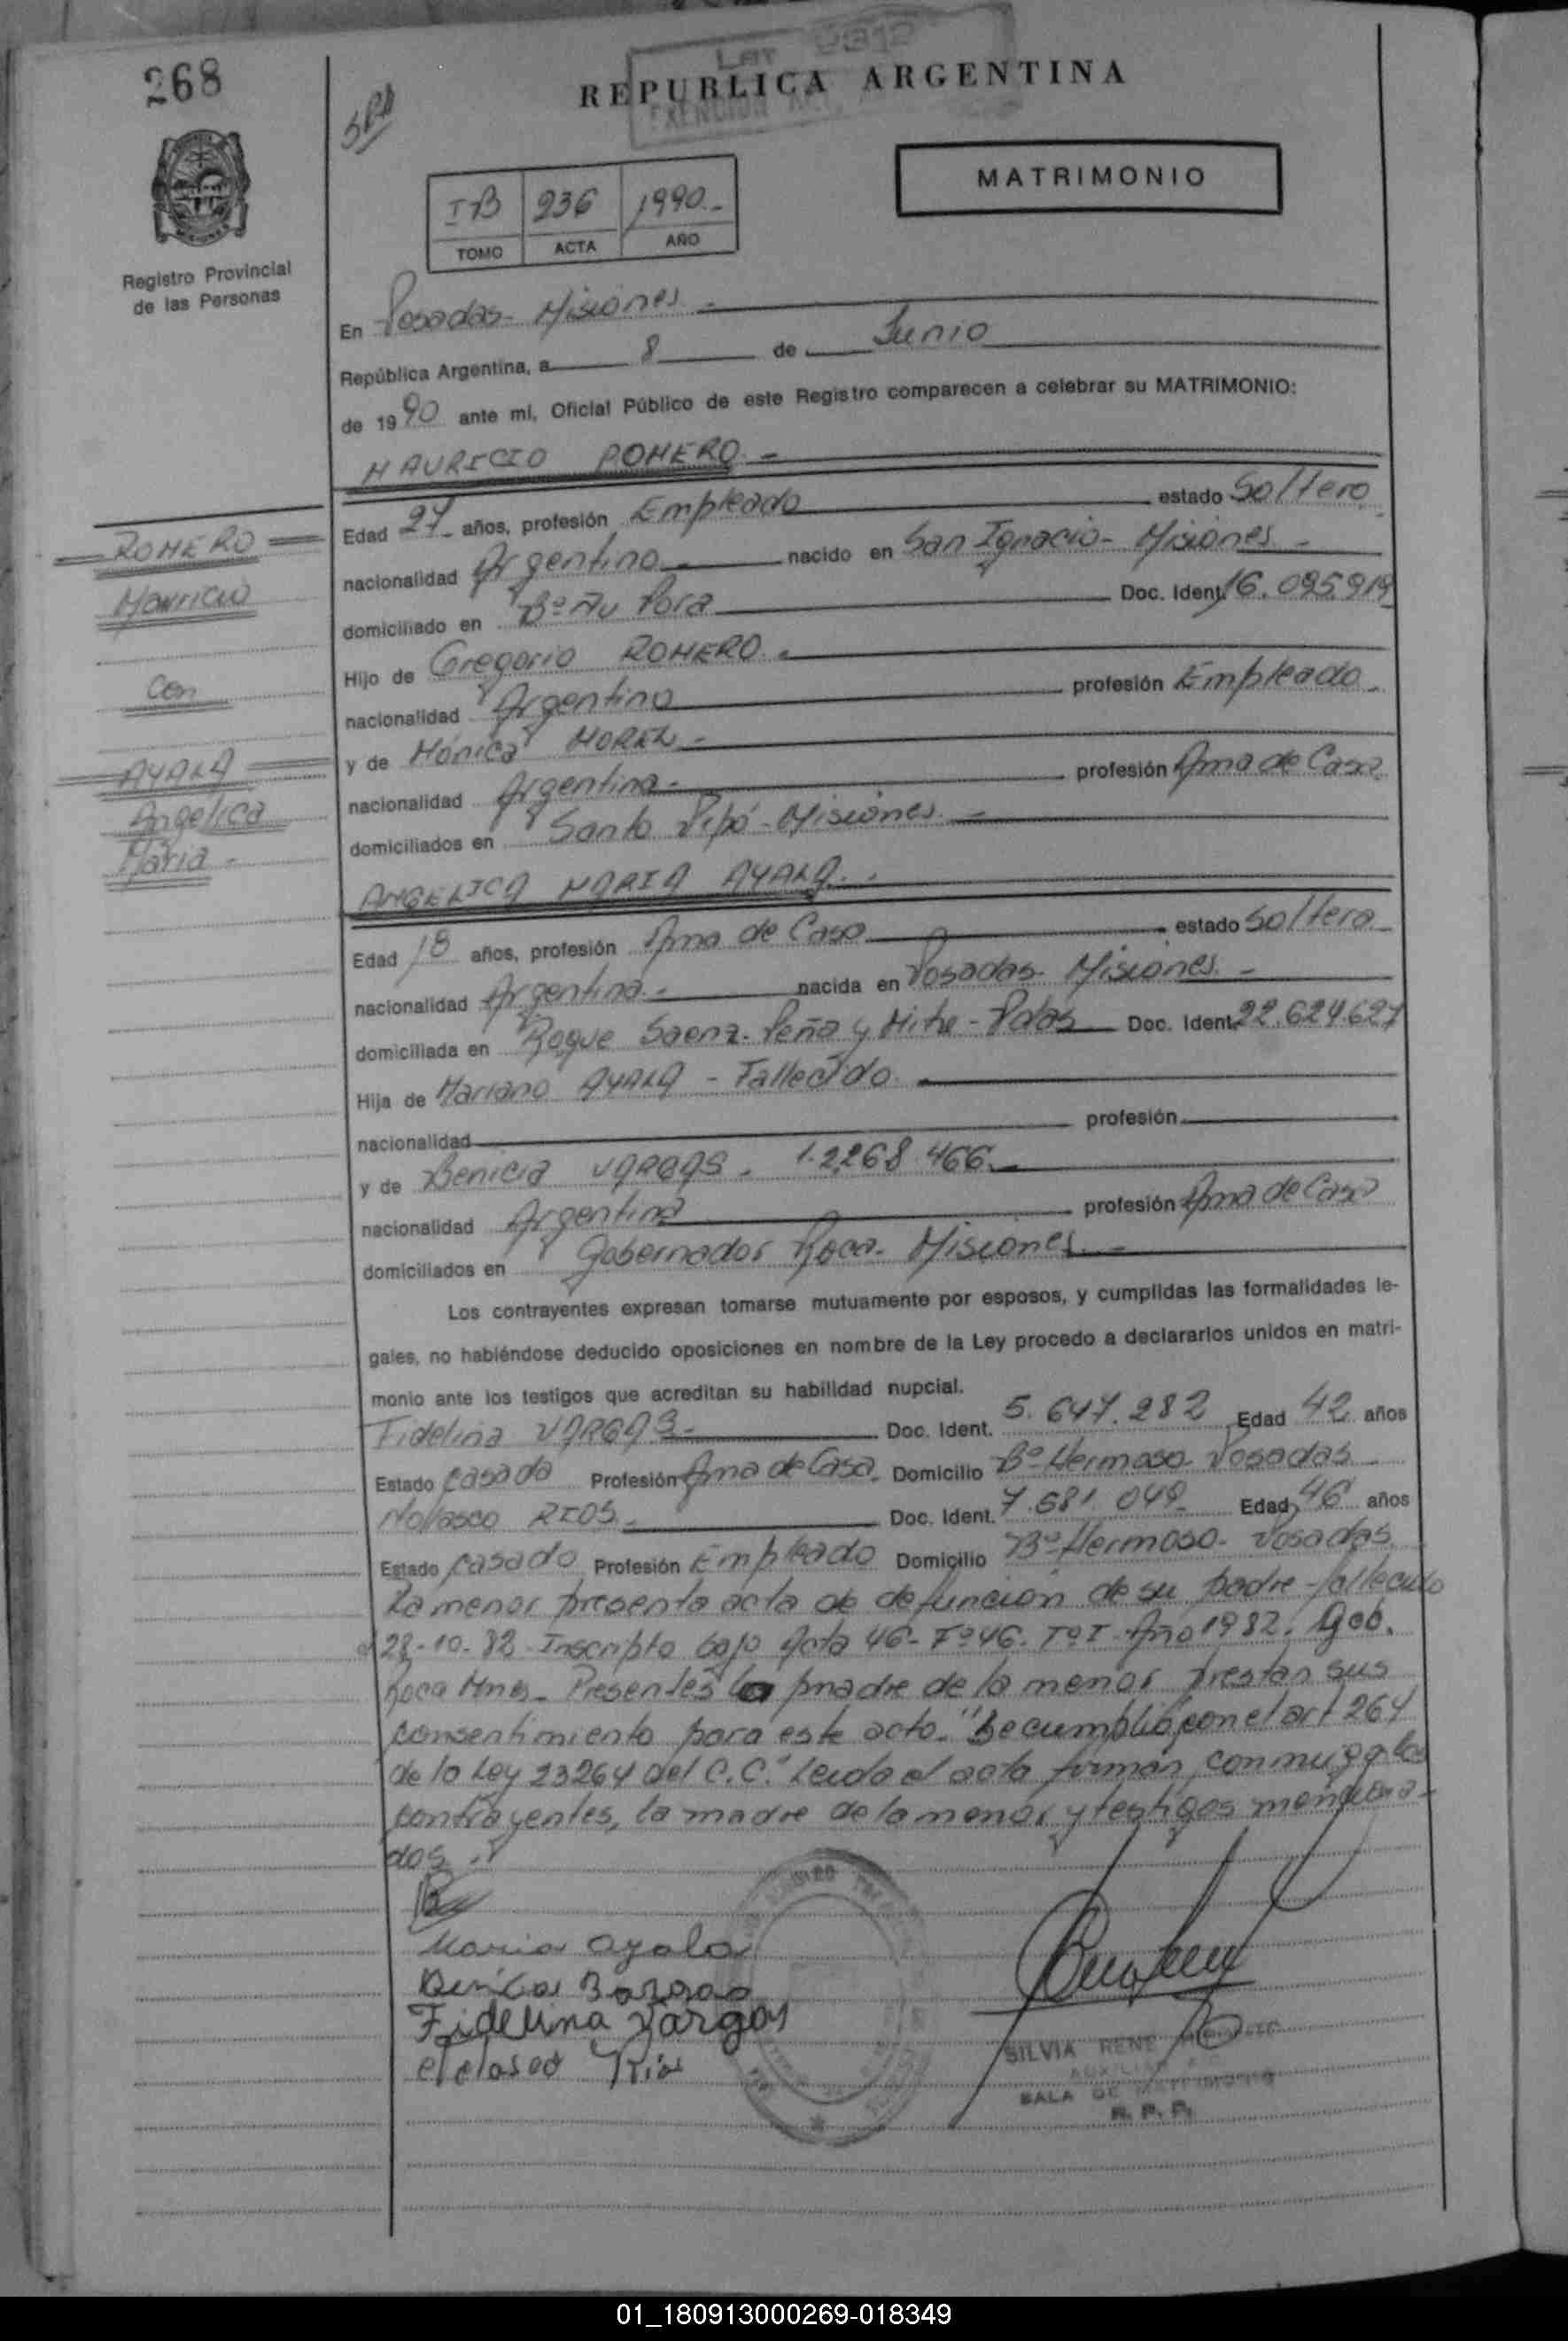 268
LEY 9312
EXENCION
REPUBLICA ARGENTINA
MATRIMONIO
I-B 236 1990.-
TOMO ACTA AÑO
Registro Provincial
de las Personas
En Posadas- Misiones.-
República Argentina, a 8 de Junio
de 1990 ante mi, Oficial Público de este Registro comparecen a celebrar su MATRIMONIO:
MAURICIO ROMERO.-
Edad 27- años, profesión Empleado estado Soltero
nacionalidad Argentino.- nacido en San Ignacio- Misiones.-
domiciliado en Bº Ñu Porá Doc. Ident. 16.095.919
Hijo de Gregorio ROMERO.-
nacionalidad Argentino profesión Empleado.
y de Mónica MOREL.-
nacionalidad Argentina.- profesión Ama de Casa
domiciliados en Santo Pipó- Misiones.-
ROMERO
Mauricio
con
AYALA
Angelica
Maria.-
ANGELICA MARIA AYALA.-
Edad 18 años, profesión Ama de Casa estado Soltera
nacionalidad Argentina.- nacida en Posadas- Misiones.-
domiciliada en Roque Saenz- Peña y Mitre- Pdas Doc. Ident. 22.624.627
Hija de Mariano AYALA - Fallecido.
nacionalidad profesión
y de Benicia VARGAS. 1.2.268.466.-
nacionalidad Argentina profesión Ama de Casa
domiciliados en Gobernador Roca- Misiones.-
Los contrayentes expresan tomarse mutuamente por esposos, y cumplidas las formalidades le-
gales, no habiéndose deducido oposiciones en nombre de la Ley procedo a declararlos unidos en matri-
monio ante los testigos que acreditan su habilidad nupcial.
Fidelina VARGAS.- Doc. Ident. 5.647.282 Edad 42 años
Estado casada Profesión Ama de Casa. Domicilio Bº Hermoso- Posadas
Nolasco RIOS.- Doc. Ident. 7.581.049- Edad 46 años
Estado casado Profesión Empleado Domicilio Bº Hermoso- Posadas
La menor presenta acta de defunción de su padre fallecido
el 28-10-82- Inscripto bajo Acta 46- Fº 46. Tº I- Año 1982. Gob.
Roca Mnes- Presentes la madre de la menor prestan sus
consentimiento para este acto. "Se cumplió con el art 264
de la Ley 23264 del C.C." Leida el acta firman conmigo los
contrayentes, la madre de la menor y testigos menciona-
dos.-
Maria ayala
Benicia Bargas
Fidelina Vargas
Rios
SILVIA RENE
AUXILIAR
SALA DE MATRIMONIO
R. P. P.
01_180913000269-018349